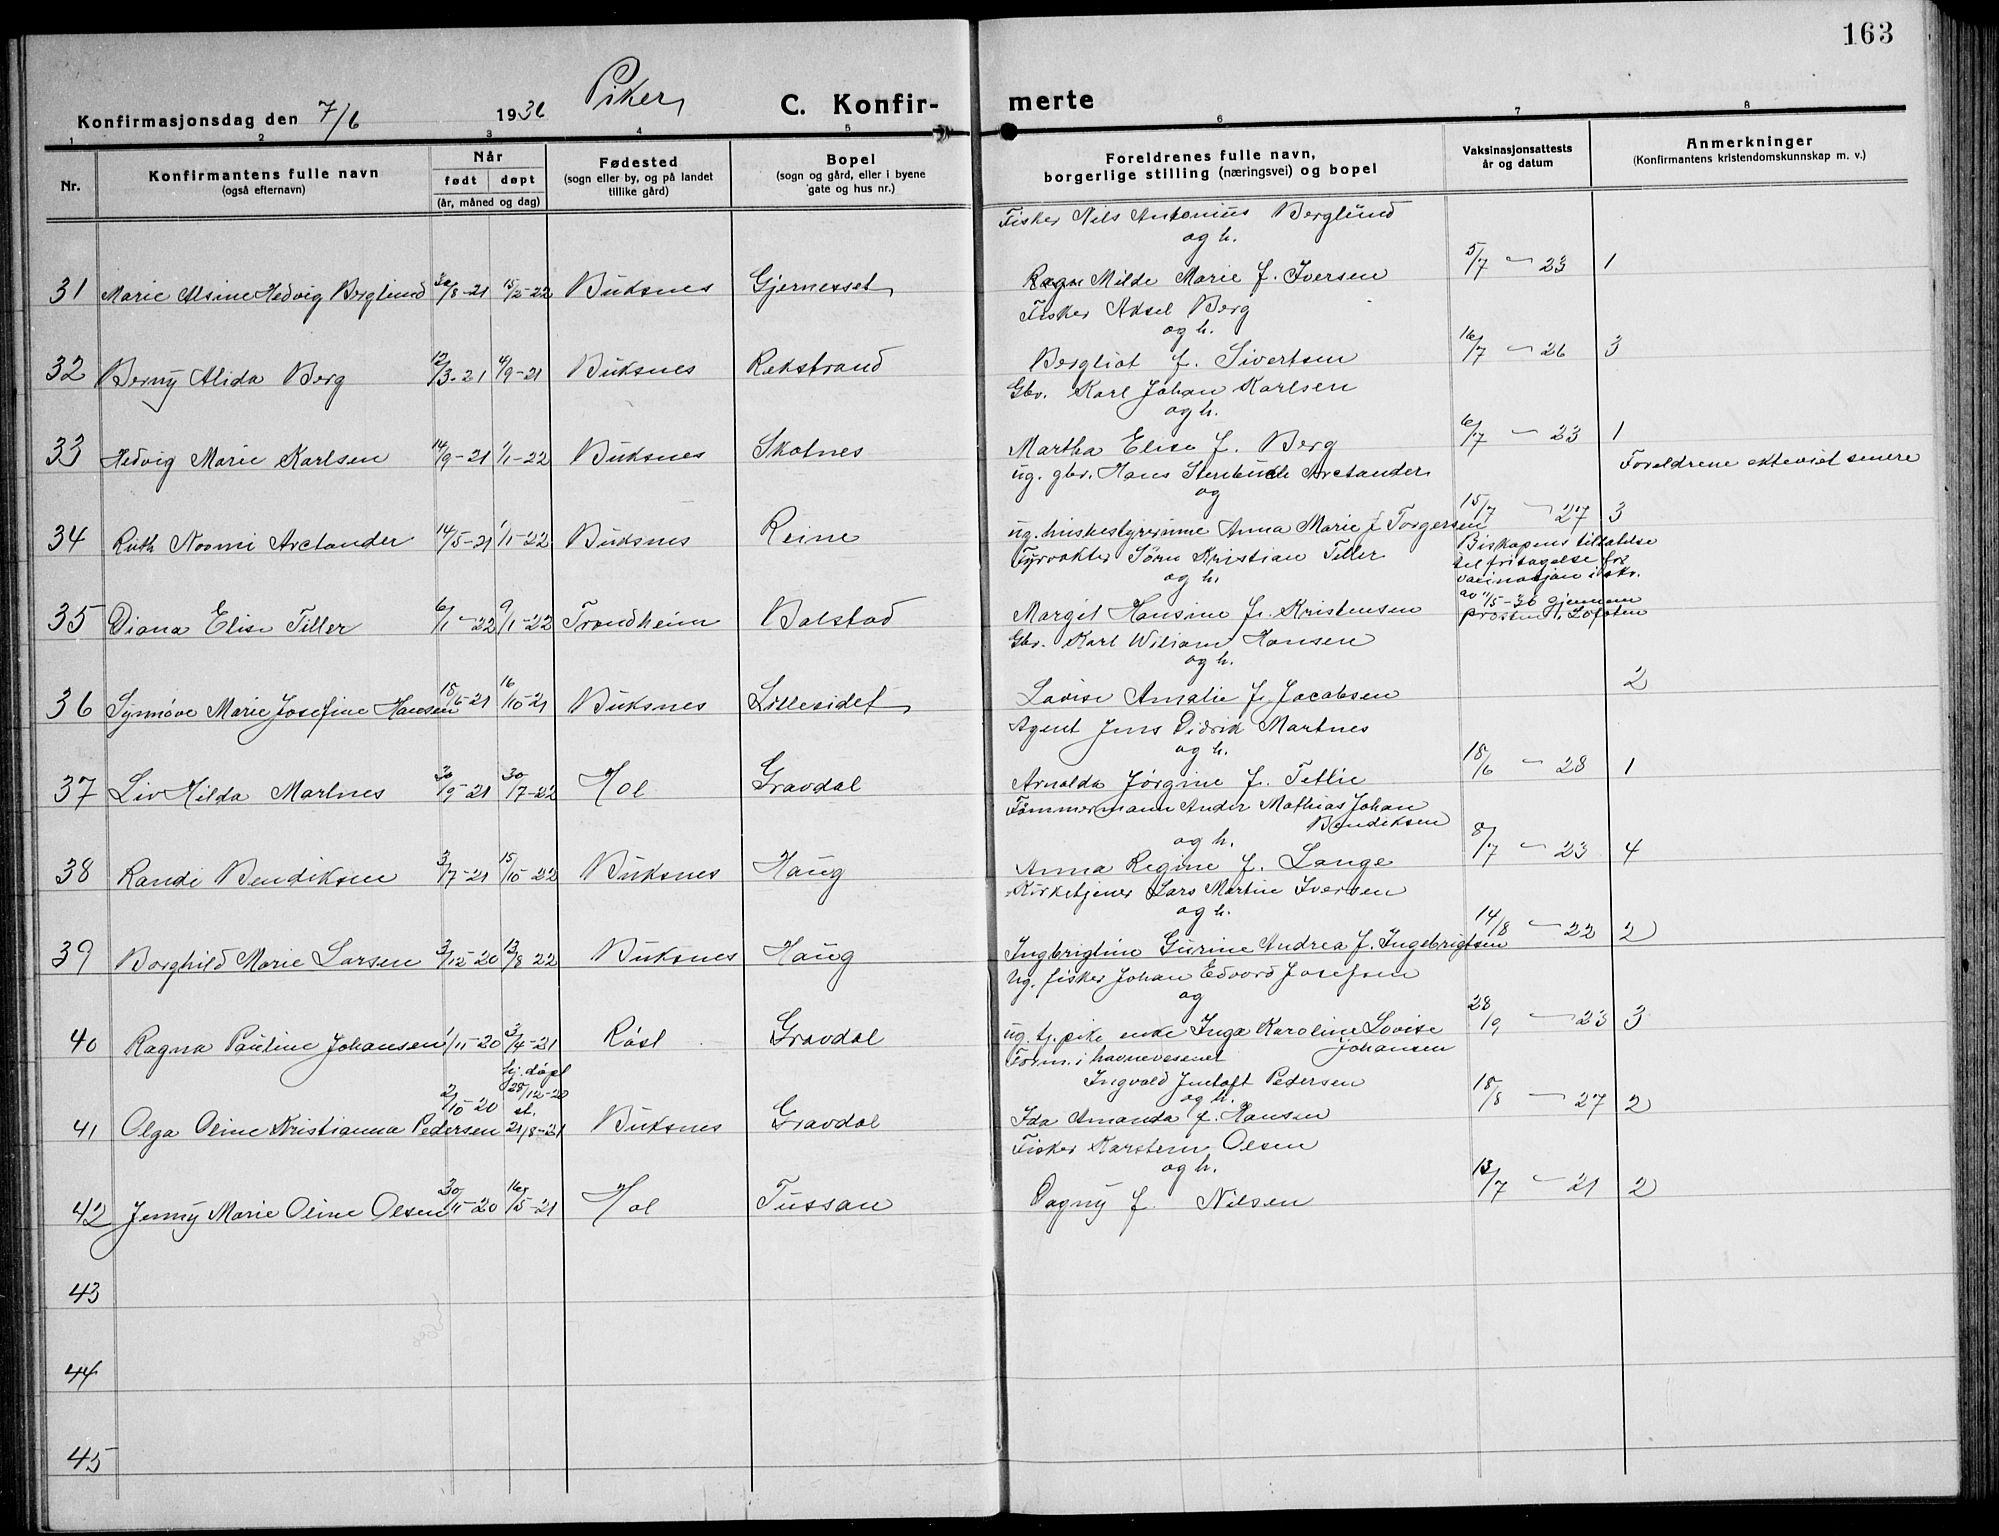 163
Konfirmasjonsdag den 7/6 1936 Piker C. Konfirmerte
1 2 3 4 5 6 7 8
Nr.
Konfirmantens fulle navn
(også efternavn)
Når
født døpt
(år, måned og dag)
Fødested
(sogn eller by, og på landet
tillike gård)
Bopel
(sogn og gård, eller i byene
gate og hus nr.)
Foreldrenes fulle navn,
borgerlige stilling (næringsvei) og bopel
Vaksinasjonsattests
år og datum
Anmerkninger
(Konfirmantens kristendomskunnskap m. v.)
Fisker Nils Antonius Berglund
og h.
31 Marie Alsine Hedvig Berglund 30/8-21 15/2-22 Buksnes Gjernesset Milde Marie f. Iversen 5/7 - 23 1
Fisker Aksel Berg
og h.
32 Berny Alida Berg 12/3-21 4/9-21 Buksnes Rekstrand Bergliot f. Sivertsen 16/7 - 26 3
Gbr. Karl Johan Karlsen
og h.
33 Hedvig Marie Karlsen 14/9-21 1/1-22 Buksnes Skotnes Martha Elise f. Berg 6/7 - 23 1
ug. gbr. Hans Arctander Foreldrene ekteviet senere
og
34 Ruth Noomi Arctander 14/5-21 1/1-22 Buksnes Reine ug. husbestyrerinne Anna Marie f. Torgersen 15/7 - 27 3
Fyrvokter Sørn Kristian Teller
og h.
Biskopens tillatelse
til fritagelse for
i skr.
av 11/5-36 gjennem
prosten i Lofoten
35 Diana Elise Tiller 6/1-22 9/1-22 Trondheim Balstad Margit Hansine f. Kristensen
Gbr. Karl Wiliam Hansen
og h.
36 Synnøve Marie Josefine Hansen 18/6-21 16/10-21 Buksnes Lilleeidet Lovise Amalie f. Jacobsen 2
Agent Jens Didrik Martnes
og h.
37 Liv Hilda Martnes 30/9-21 30/7-22 Hol Gravdal Arnolda Jørgine f. Tetlie 18/6 - 28 1
Tømmermann Ander Mathias Johan
Bendiksen
og h.
38 Randi Bendiksen 3/7-21 15/10-22 Buksnes Haug Anna Regine f. Lange 8/7 - 23 4
Kirketjener Lars Martin Iversen
og h.
39 Borghild Marie Larsen 3/12-20 13/8 22 Buksnes Haug Ingbrigtine Gurine Andrea f. Ingebrigtsen 14/8 - 22 2
Ug. fisker Johan Edvard Josefsen
og
40 Ragna Pauline Johansen 1/11-20 3/4-21 Røst Gravdal ug. tj. pike enke Inga Karoline Lovise
Johansen 28/9 - 23 3
Form. i havnevesenet
Ingvald Pedersen
og h.
41 Olga Oline Kristianna Pedersen 2/10-20 hj. døpt
28/12-20
st.
21/8-21 Buksnes Gravdal Ida Amanda f. Hansen 18/8 - 27 2
Fisker Karstein Olsen
og h.
42 Jenny Marie Oline Olsen 30/11-20 16/5-21 Hol Tussan Dagny f. Nilsen 13/7 - 21 2
43
44
45